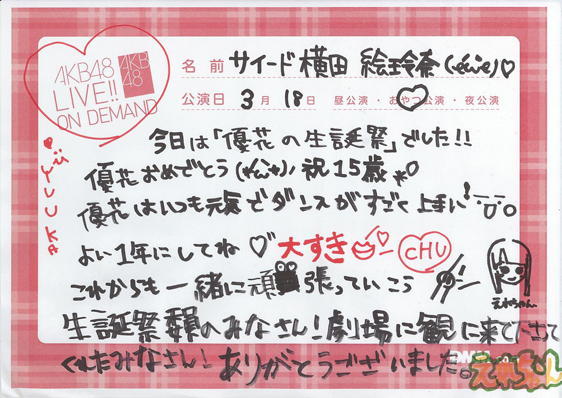 AKB48
LIVE!!
ON DEMAND
AKB
48
名前 サイード横田 絵玲奈
公演日 3月18日 昼公演・おやつ公演・夜公演
YUUKA
今日は「優花の生誕祭」でした!!
優花おめでとう 祝15歳
優花はいつも元気でダンスがすごく上手い!
よい1年にしてね 大すき CHU
これからも一緒に頑張っていこう
えれちゃん
生誕祭 のみなさん!劇場に観に来て下さって
くれたみなさん!ありがとうございました。
えれちゃん